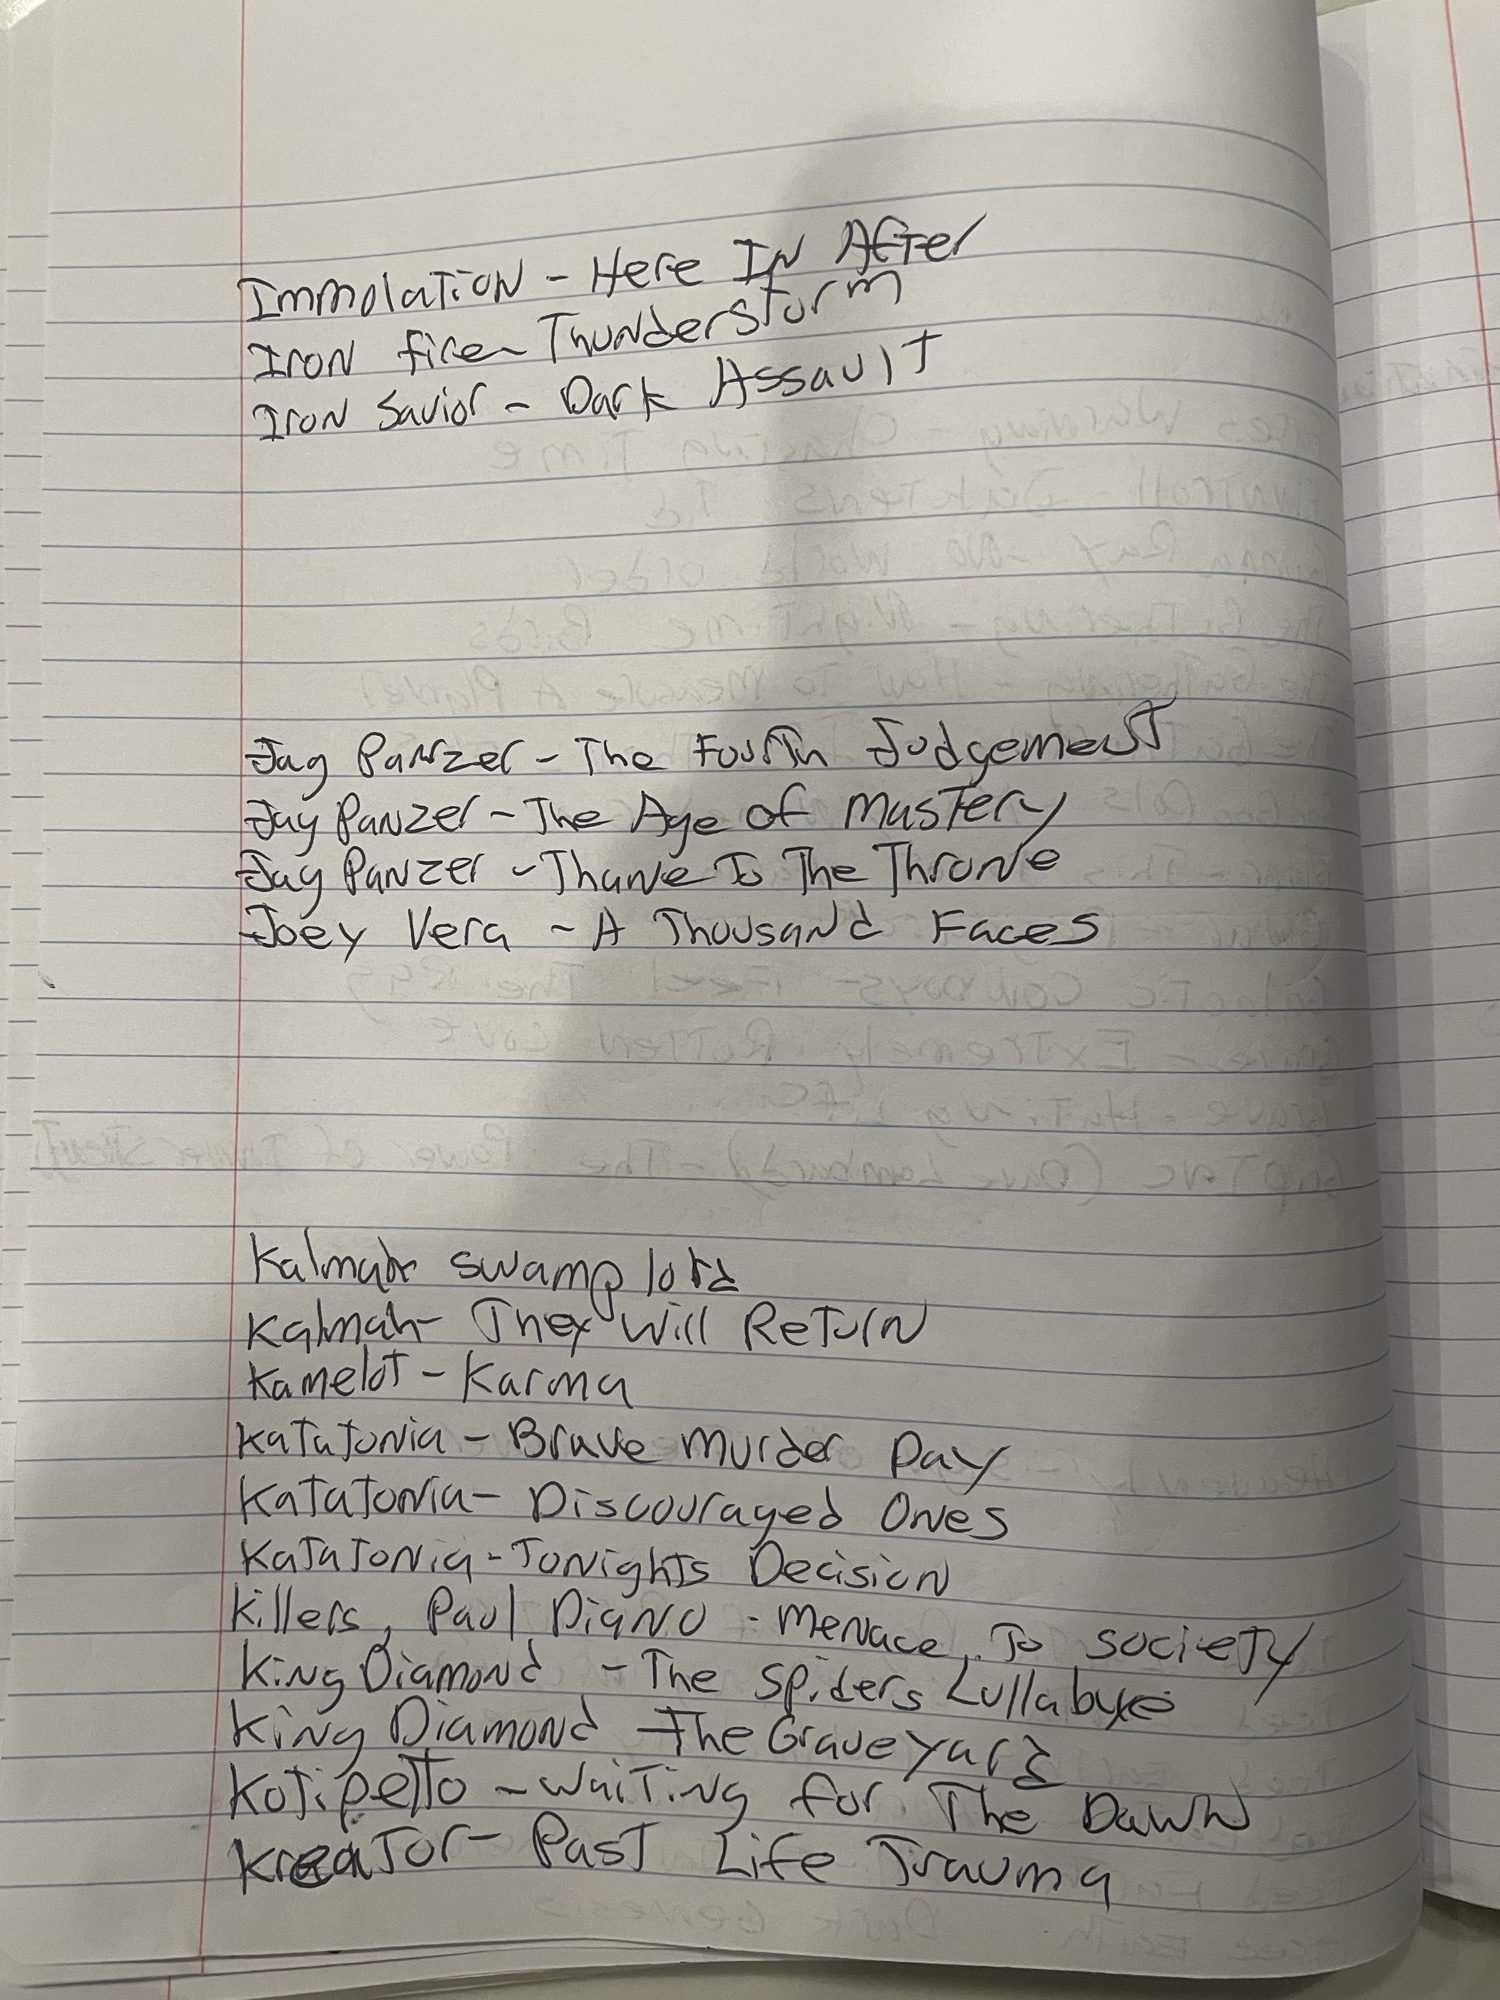 Immolation - Here In After
Iron fire - Thunderstorm
Iron Savior - Dark Assault
Jag Panzer - The Fourth Judgement
Jag Panzer - The Age of Mastery
Jag Panzer - Thane To The Throne
Joey Vera - A Thousand Faces
Kalmah swamp lord
Kalmah - They Will Return
Kamelot - Karma
Katatonia - Brave Murder Day
Katatonia - Discouraged Ones
Katatonia - Tonights Decision
Killers, Paul Diano - Menace To Society
King Diamond - The Spiders Lullabye
King Diamond - The Graveyard
Kotipelto - Waiting for The Dawn
Kreator - Past Life Trauma